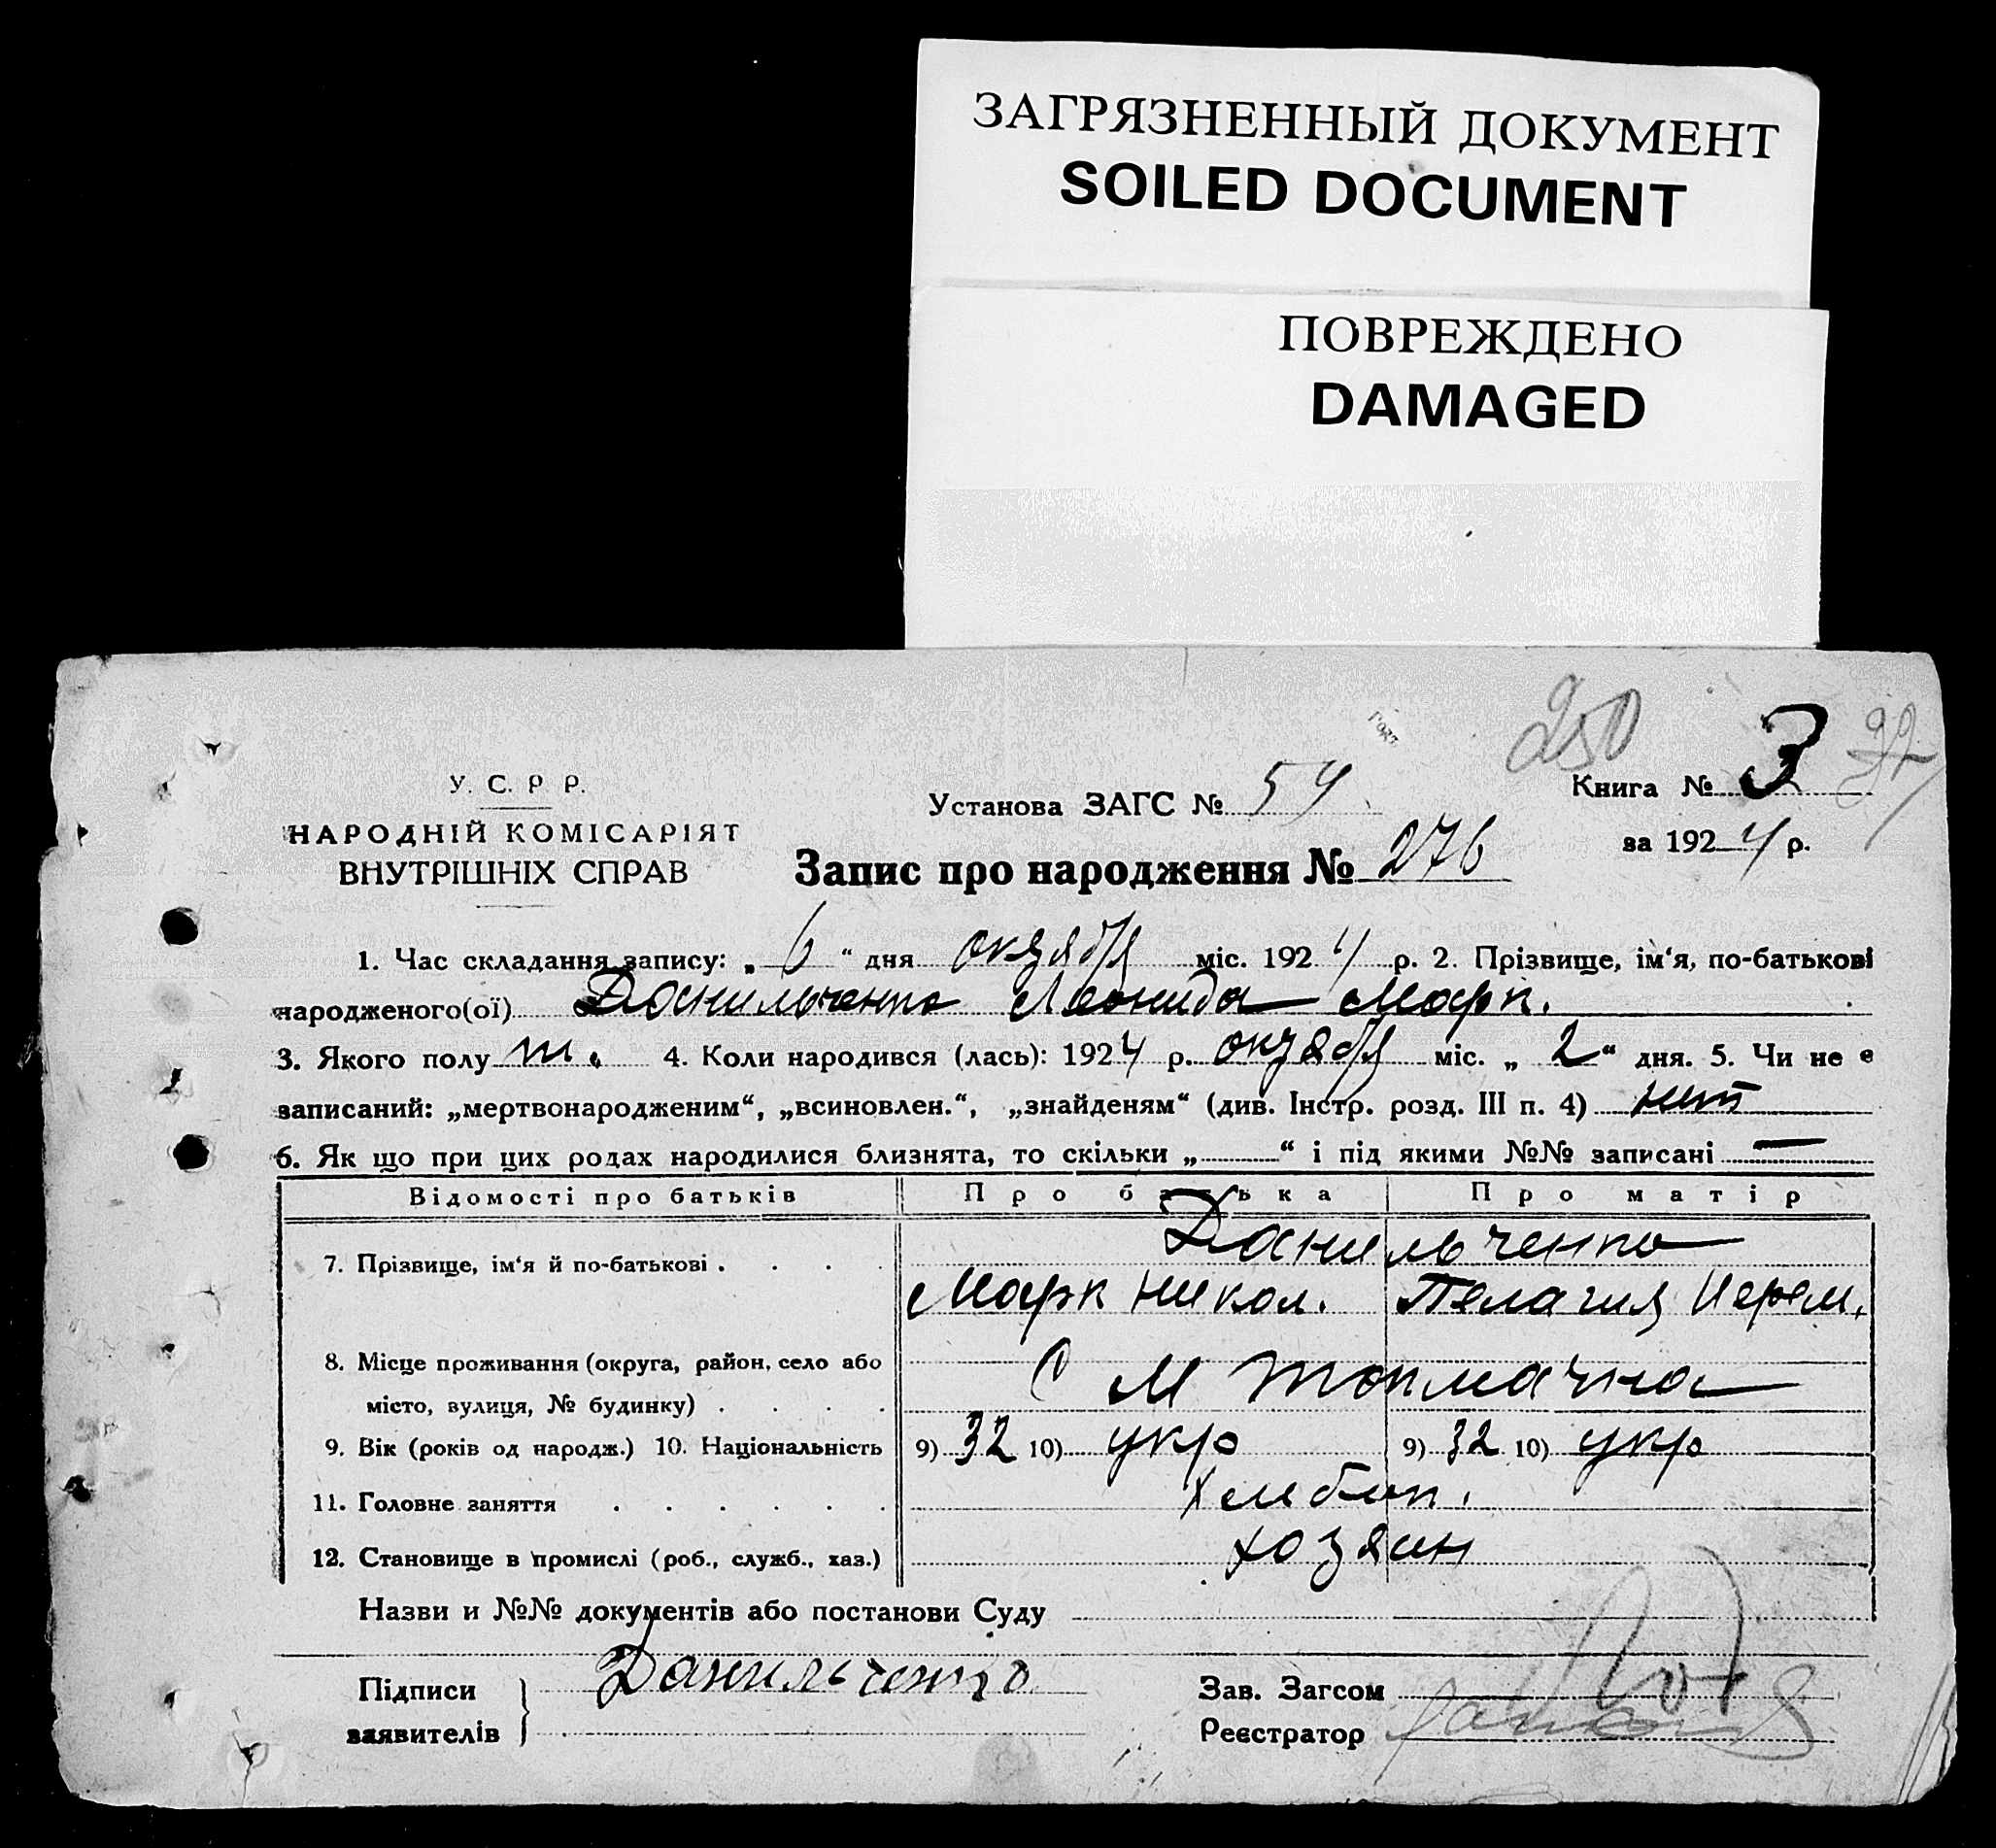 ЗАГРЯЗНЕННЫЙ ДОКУМЕНТ
SOILED DOCUMENT
ПОВРЕЖДЕНО
DAMAGED
250
32
У. С. Р Р.
НАРОДНІЙ КОМІСАРІЯТ
ВНУТРІШНІХ СПРАВ
Установа ЗАГС № 54
Книга № 3
за 1924 р.
Запис про народження № 276
1. Час складання запису: „ 6 “ дня октября міс. 1924 р. 2. Прізвище, ім‘я, по-батькові
народженого(ої) Данильченко Леонида Марк.
3. Якого полу m. 4. Коли народився (лась): 1924 р. октября міс. „ 2 “ дня. 5. Чи не є
записаний: „мертвонародженим“, „всиновлен.“, „знайденям“ (див. Інстр. розд. III п. 4) нет
6. Як що при цих родах народилися близнята, то скільки „ “ і під якими №№ записані —
Відомості про батьків Про батька Про матір
7. Прізвище, ім‘я й по-батькові . . . . Данильченко
Марк Никол. Пелагия Иерем.
8. Місце проживання (округа, район, село або
місто, вулиця, № будинку) . . . . С М Токмачка
9. Вік (років од народж.) 10. Національність 9) 32 10) укр 9) 32 10) укр
11. Головне заняття . . . . . . Хлебоп.
12. Становище в промислі (роб., служб., хаз.) хозяин
Назви и №№ документів або постанови Суду
Підписи
заявителів } Данильченко
Зав. Загсом
Реєстратор